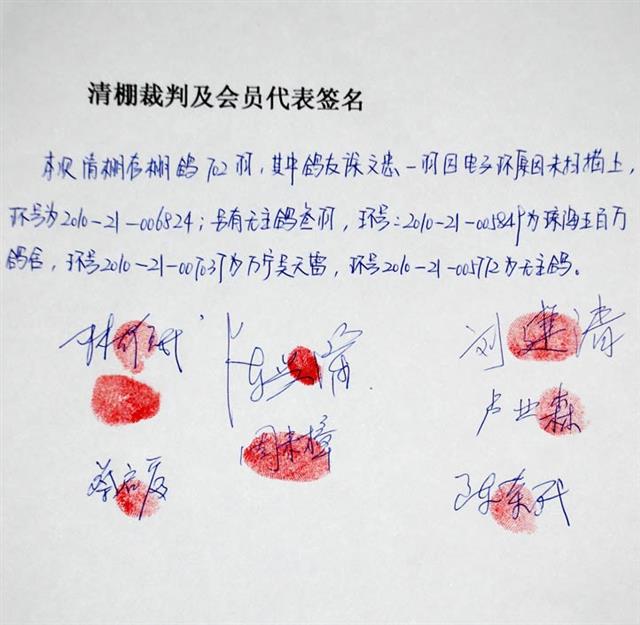 清棚裁判及会员代表签名
本次清棚存棚鸽702羽,其中鸽友谟文忠一羽因电子环原因未扫描上,
环号为2010-21-006824;另有无主鸽叁羽,环号:2010-21-005849为珠海王百万
鸽舍,环号2010-21-007037为万宁吴天雷,环号2010-21-005772为无主鸽。
刘建清
卢业森
周来樟
蔡启厦
陈东